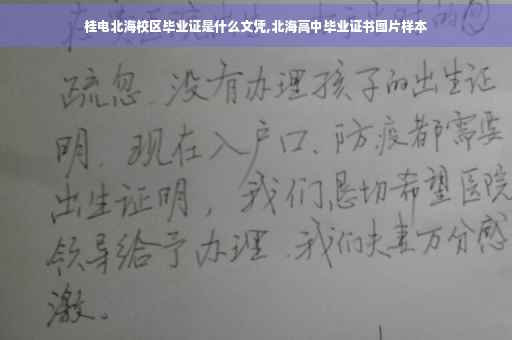 桂电北海校区毕业证是什么文凭,北海高中毕业证书图片样本
疏忽、没有办理孩子的出生证
明、现在入户口、防疫都需要
出生证明，我们恳切希望医院
领导给予办理、我们夫妻万分感
激。